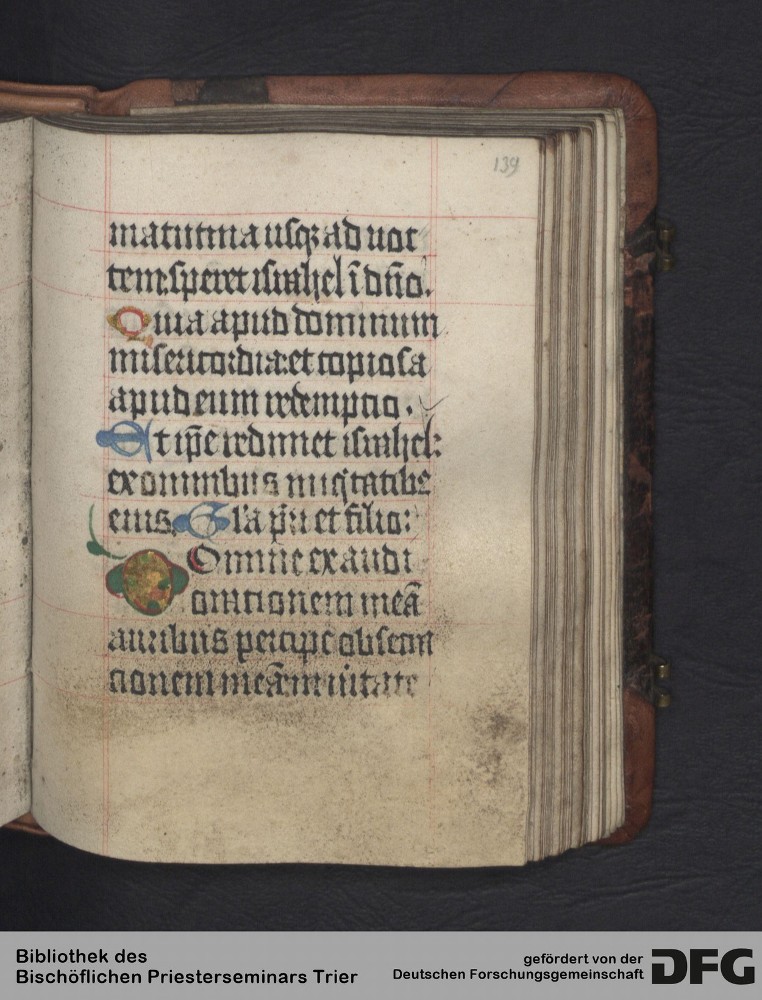 139
matutina usq; ad noc
tem: speret israhel ī dn̄o.
Quia apud dominum
misericordia: et copiosa
apud eum redemptio.
Et ip̄e redimet israhel:
ex omnibus iniq̄tatibꝫ
eius. Gl'a p̄ri et filio:
Domine exaudi
orationem meā
auribus percipe obsecra
tionem meā: in uitate
Bibliothek des
Bischöflichen Priesterseminars Trier
gefördert von der
Deutschen Forschungsgemeinschaft
DFG